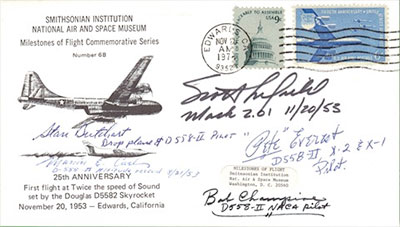 SMITHSONIAN INSTITUTION
NATIONAL AIR AND SPACE MUSEUM
Milestones of Flight Commemorative Series
Number 68
EDWARDS
NOV 20
AM
93523
9c
Scott Crossfield
Mach 2.01 11/20/53
Stan Butchart
Drop plane & D558-II Pilot
"Pete" Everest
D558 II X-2 & X-1
Pilot.
Marion E. Carl
D-558 II altitude record
25th ANNIVERSARY
First flight at Twice the speed of Sound
set by the Douglas D5582 Skyrocket
November 20, 1953 – Edwards, California
MILESTONES OF FLIGHT
Smithsonian Institution
Nat. Air & Space Museum
Washington, D. C. 20560
Bob Champine
D558-II NACA pilot